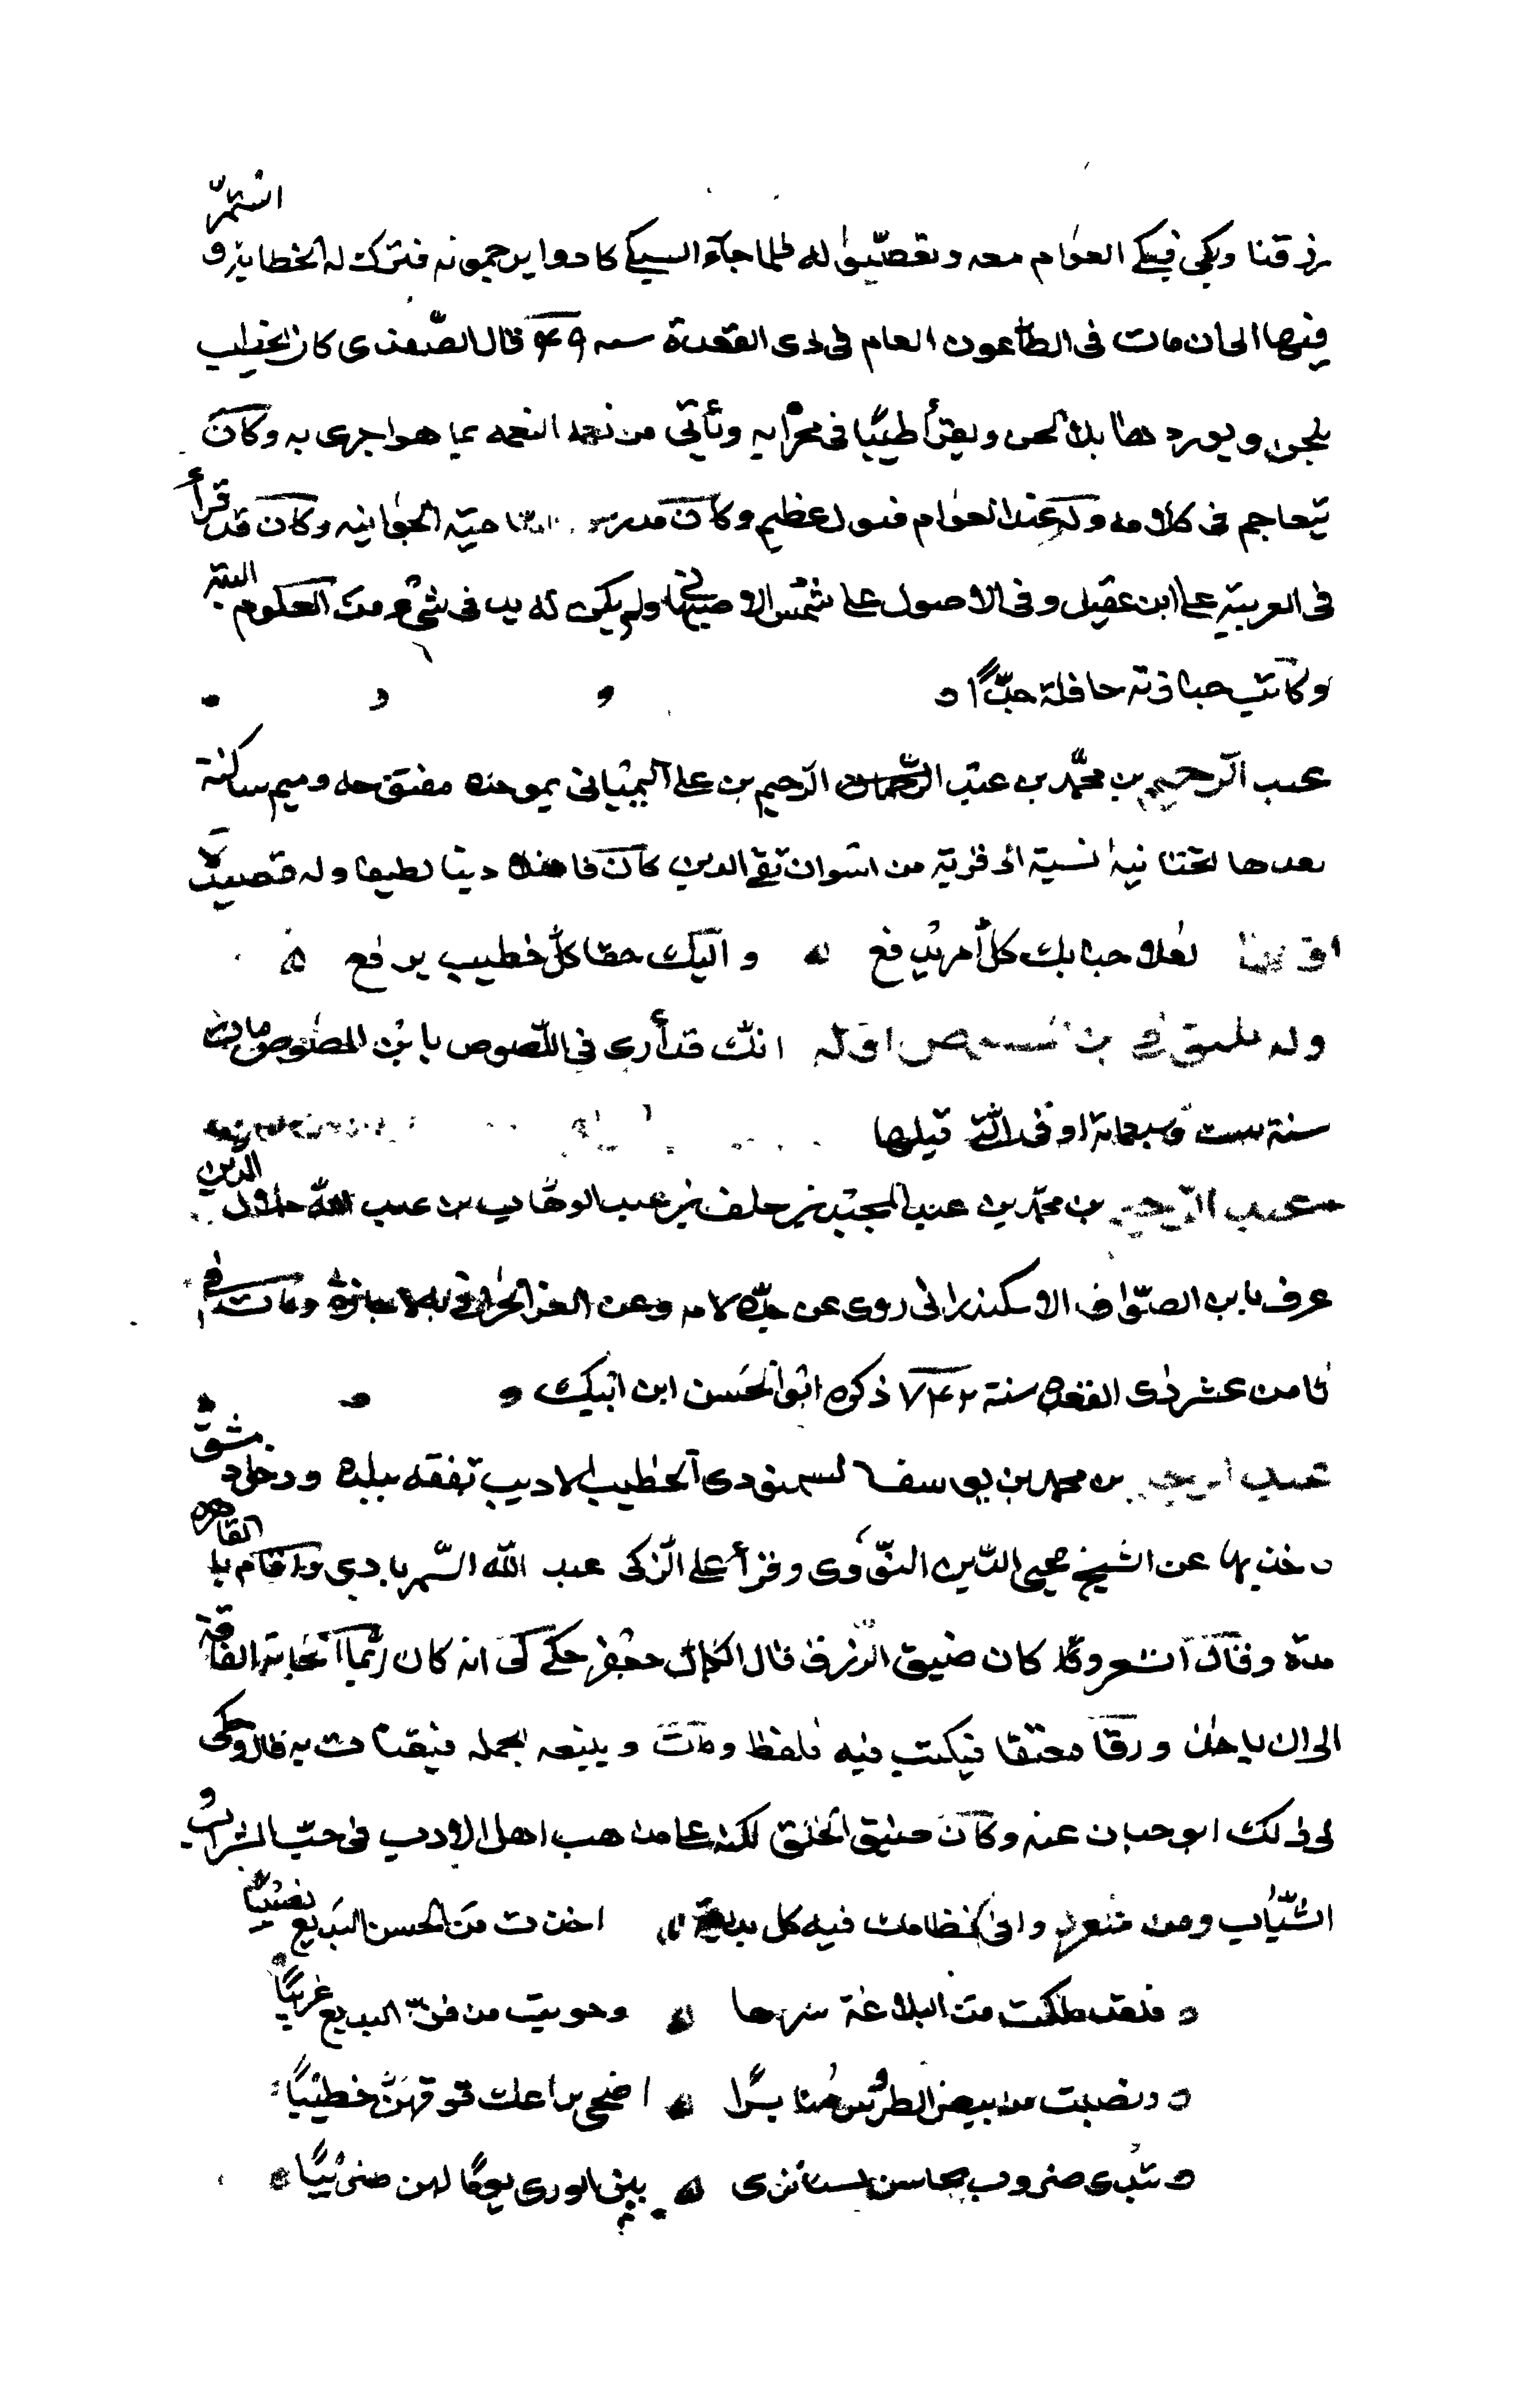 رزقنا ويبكى فيبكى العوام معه وتعصّبوا له فلما جاء السبكى كادوا يرجمونه فترك له الخطابة واستمرّ
فيها الى ان مات فى الطاعون العام فى ذى القعدة سنه ٧٤٩ قال الصّفدى كان الخطيب
يلحن ويورد بلا لحن ويقرأ طيبًا فى محرابه ويأتى من النغمه بما هو اجرى به وكان
يتعاجم فى كلامه وله عند العوام قبول عظيم وكان مدرس الجوانيه وكان قد قرأ
فى العربية على ابن عقيل وفى الاصول على شمس الاصبهانى ولم يكن له يد فى شئ من العلوم البتة
وكانت جنازته حافلة جدًّا
عبد الرّحيم بن محمّد بن عبد الرّحيم بن على البمبانى بموحده مفتوحه وميم ساكنة
بعدها تحتانية نسبة الى قرية من اسوان تقى الدين كان فاضلا دينا لطيفا وله قصيدة
اولها لعلا جنابك كل أمر يدفع واليك حقا كل خطيب يرفع
وله اوله انك قد أرى فى اللصوص يا ابن مات
سنة ست وسبعمائة او فى التى قبلها
عبد الرّحيم بن محمّد بن عبد المجيد بن خلف بن عبد الوهاب بن عبد الله جلال الدين
عرف بابن الصوّاف الاسكندرانى روى عن جدّه لامه وعن العز الحرانى بالاجازة ومات فى
ثامن عشر ذى القعدة سنة ٧٤٢ ذكره ابو الحسن ابن ايبك
عبد الرحيم بن محمد بن يوسف السمنودى الخطيب الاديب تفقه ببلده ودخل دمشق
واخذ بها عن الشيخ محيى الدّين النّووى وقرأ على الزكى عبد الله السّمربادى واقام بالقاهره
مدة وقال الشعر وكان ضيق الرّزق قال الكمال جعفر حكى لى انه كان ربما الجأته الفاقة
الى ان ياخذ ورقا معتقا فيكتب فيه ويبيعه بجمله فيقتات به قال وحكى
لى ذلك ابو حيان عنه وكان ضيق الخلق لكنه على مذهب اهل الادب فى حبّ الشراب و
الشّباب ومن شعره وافى نظامك فيه كل بديعة اخذت من الحسن البديع نصيبًا
فلقد ملكت من البلاغة سرها وحويت من فنّ البديع غريبًا
ونصبت من بيض الطروس منابرًا اضحى يراعك فوقهنّ خطيبًا
تبدى ضروب محاسن لسنا نرى بين الورى يومًا لهن ضريبًا